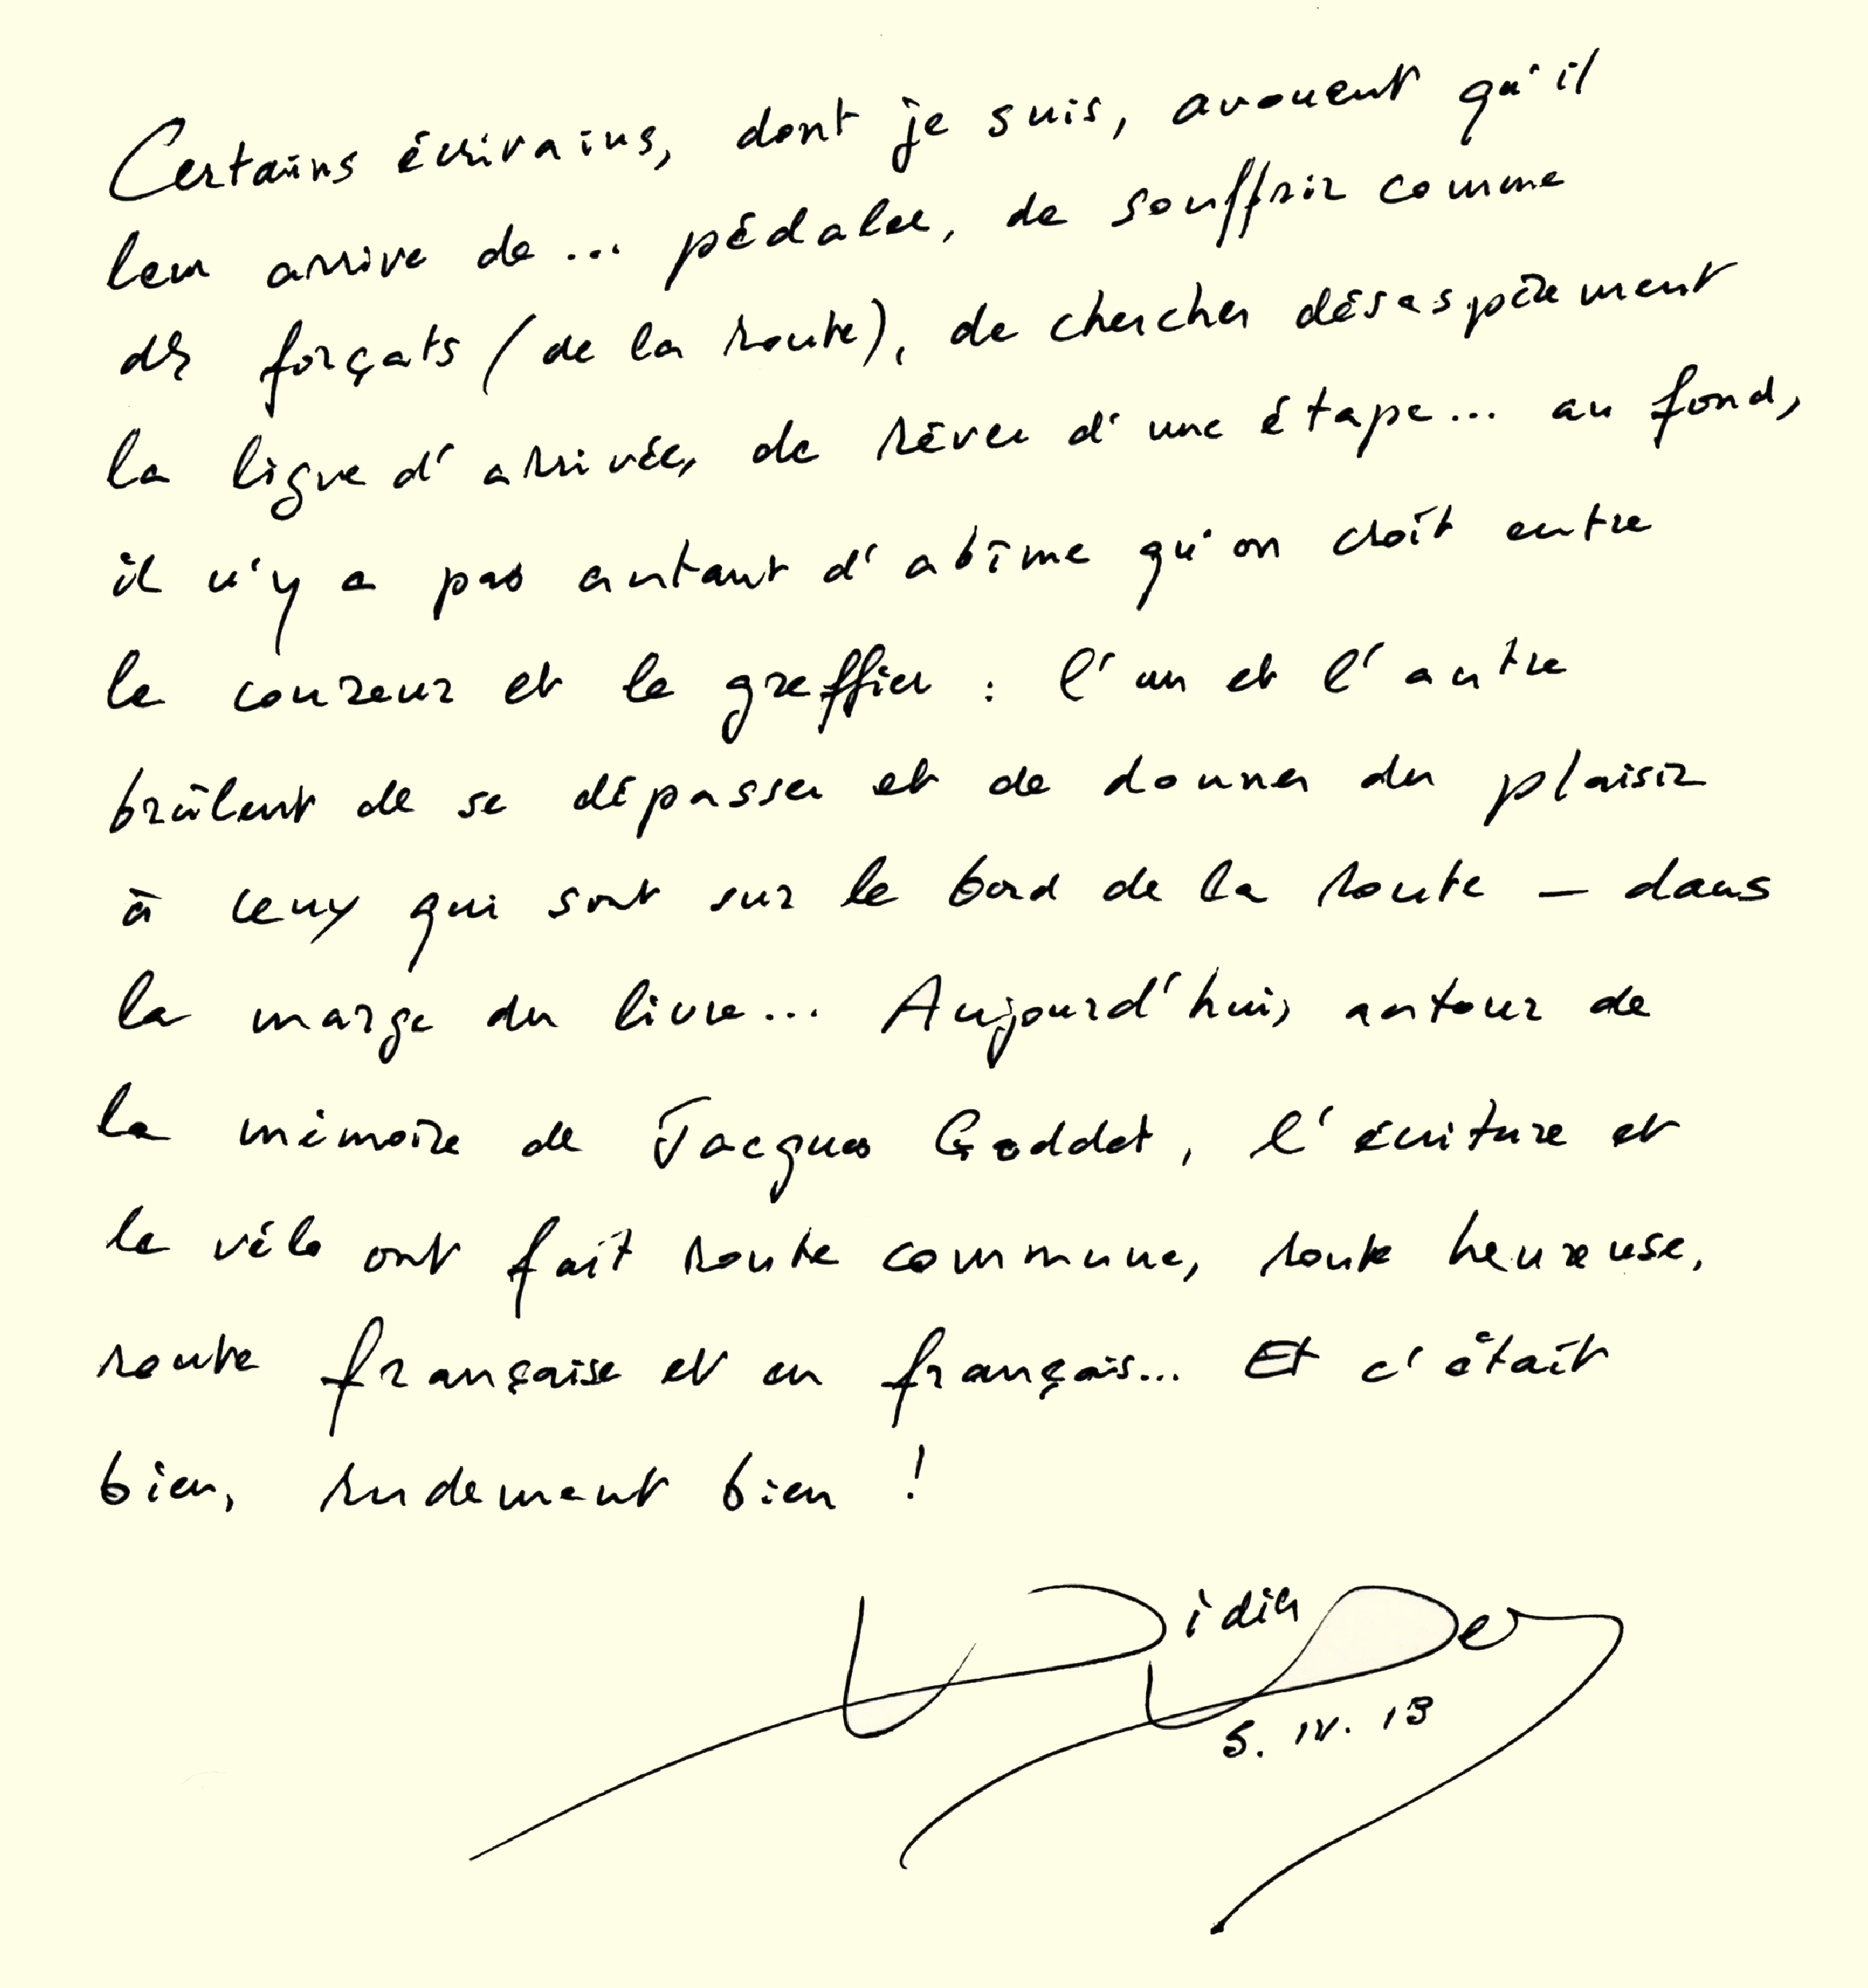 Certains écrivains, dont je suis, avouent qu'il
leur arrive de ... pédaler, de souffrir comme
des forçats (de la route), de chercher désespérément
la ligne d'arrivée, de rêver d'une étape... au fond,
il n'y a pas autant d'abîme qu'on croît entre
le coureur et le greffier : l'un et l'autre
brûlent de se dépasser et de donner du plaisir
à ceux qui sont sur le bord de la route – dans
la marge du livre... Aujourd'hui, autour de
la mémoire de Jacques Goddet, l'écriture et
le vélo ont fait route commune, route heureuse,
route française et en français... Et c'était
bien, rudement bien !
Didier
5. IV. 13